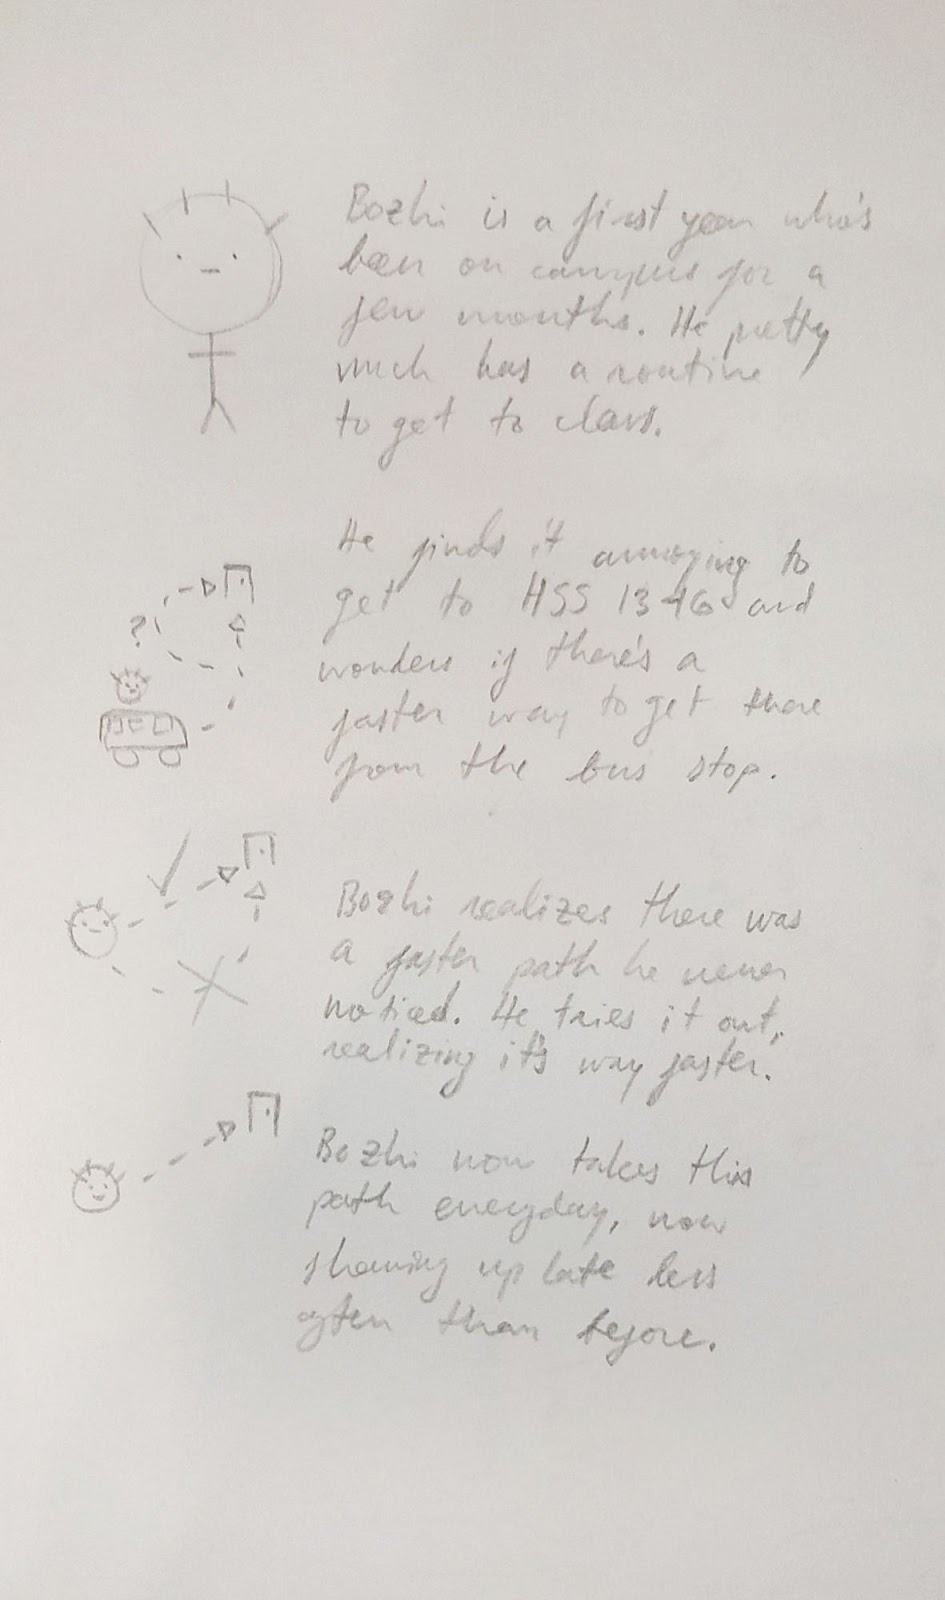 Bozhi is a first year who's
been on campus for a
few months. He pretty
much has a routine
to get to class.
He finds it annoying to
get to HSS 1346 and
wonders if there's a
faster way to get there
from the bus stop.
?
Bozhi realizes there was
a faster path he never
noticed. He tries it out,
realizing it's way faster.
Bozhi now takes this
path everyday, now
showing up late less
often than before.